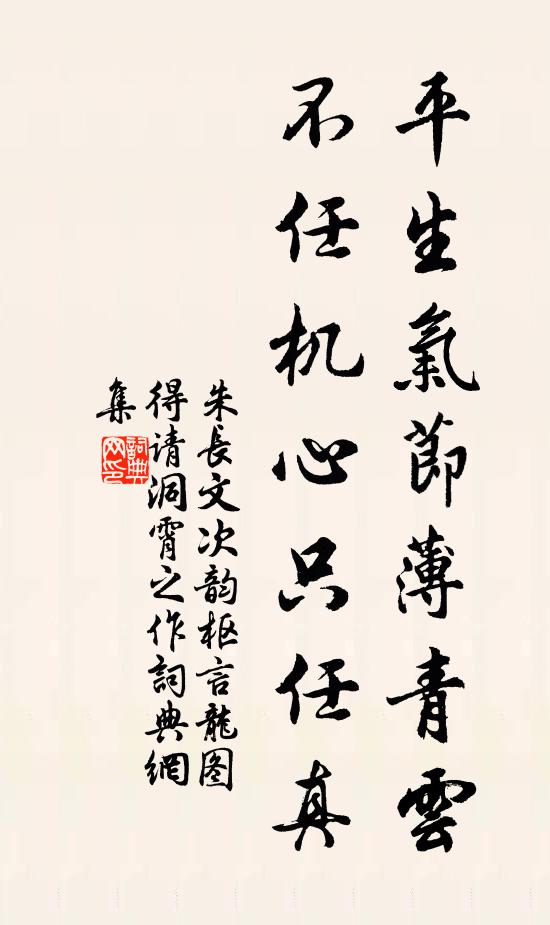 平生氣節薄青雲
不任机心只任真
朱長文次韵枢言龍图
得请洞霄之作詞典網
集
詞典網印